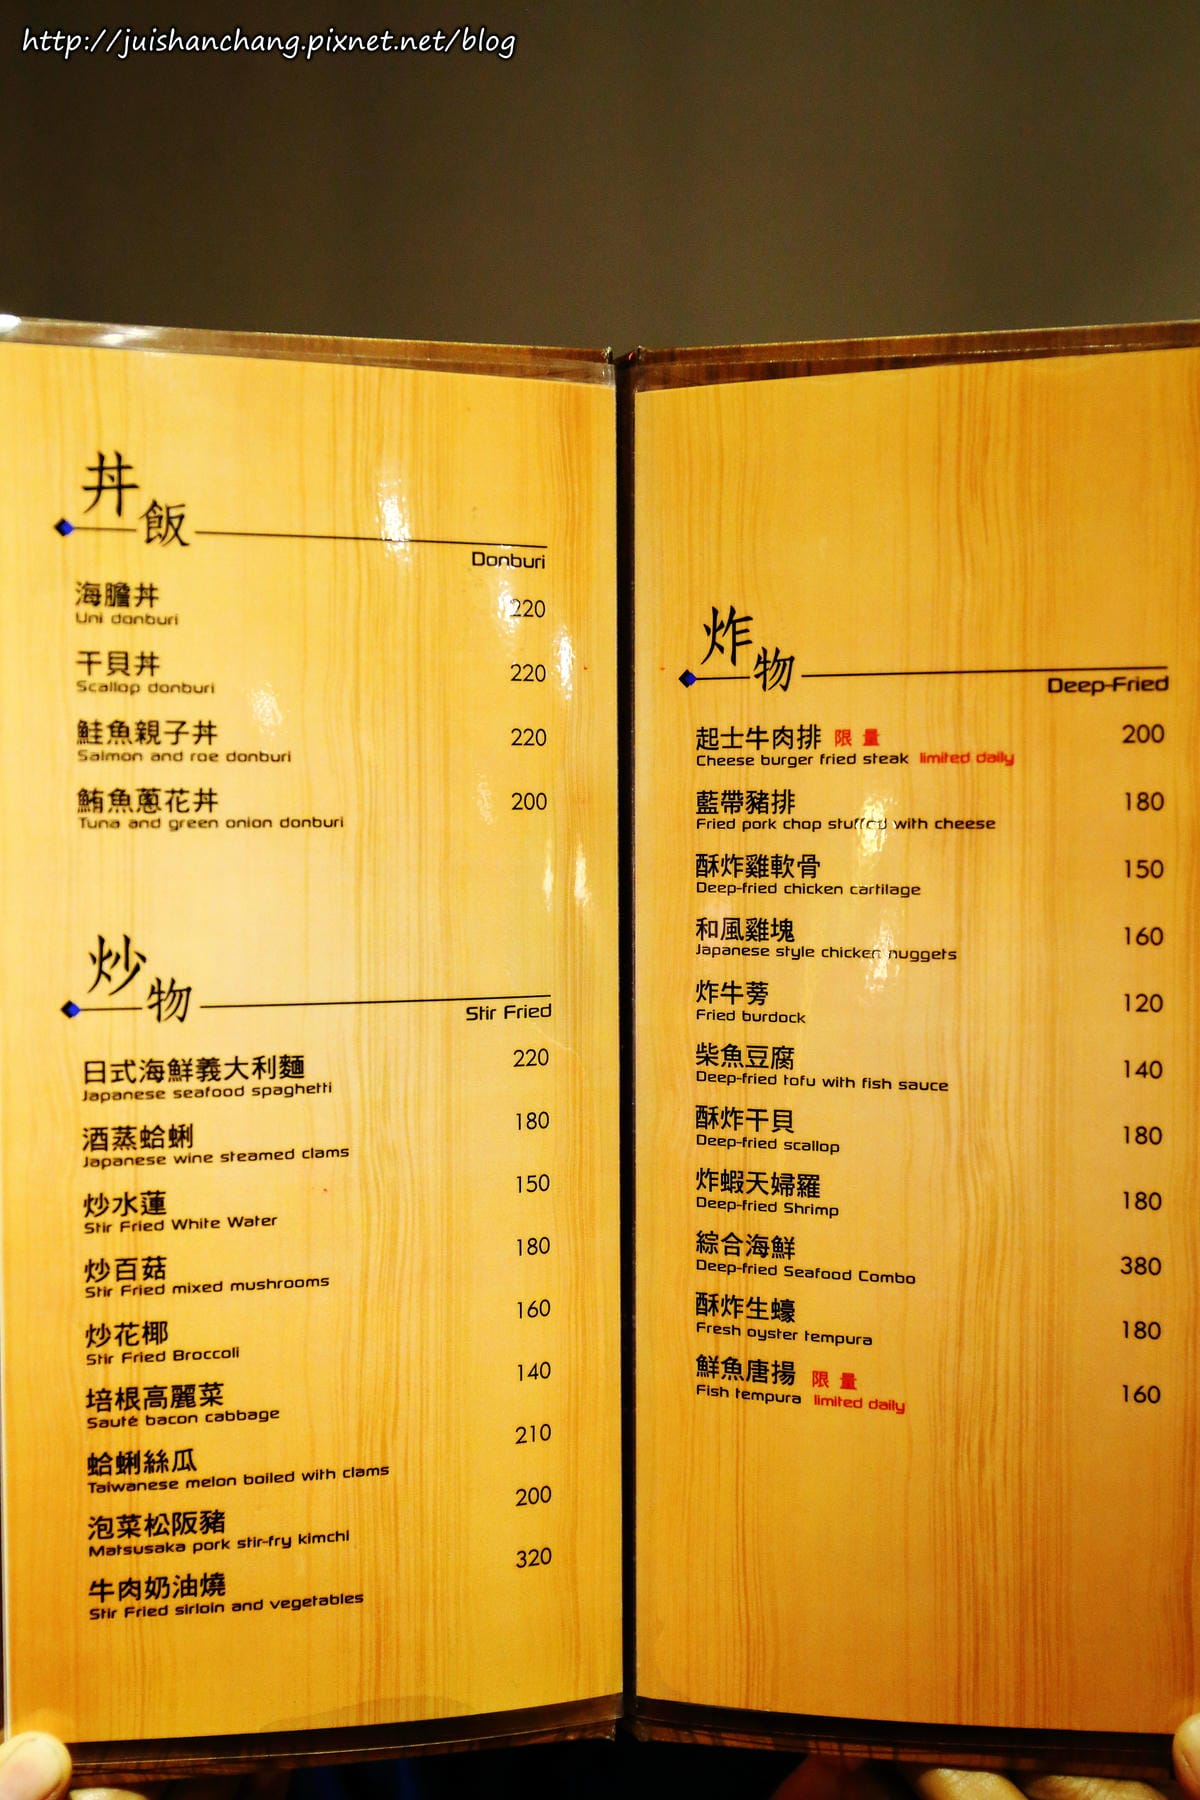 http://juishanchang.pixnet.net/blog
丼飯
Donburi
海膽丼 220
Uni donburi
干貝丼 220
Scallop donburi
鮭魚親子丼 220
Salmon and roe donburi
鮪魚蔥花丼 200
Tuna and green onion donburi
炒物
Stir Fried
日式海鮮義大利麵 220
Japanese seafood spaghetti
酒蒸蛤蜊 180
Japanese wine steamed clams
炒水蓮 150
Stir Fried White Water
炒百菇 180
Stir Fried mixed mushrooms
炒花椰 160
Stir Fried Broccoli
培根高麗菜 140
Sauté bacon cabbage
蛤蜊絲瓜 210
Taiwanese melon boiled with clams
泡菜松阪豬 200
Matsusaka pork stir-fry kimchi
牛肉奶油燒 320
Stir Fried sirloin and vegetables
炸物
Deep-Fried
起士牛肉排 限量 200
Cheese burger fried steak limited daily
藍帶豬排 180
Fried pork chop stuffed with cheese
酥炸雞軟骨 150
Deep-fried chicken cartilage
和風雞塊 160
Japanese style chicken nuggets
炸牛蒡 120
Fried burdock
柴魚豆腐 140
Deep-fried tofu with fish sauce
酥炸干貝 180
Deep-fried scallop
炸蝦天婦羅 180
Deep-fried Shrimp
綜合海鮮 380
Deep-fried Seafood Combo
酥炸生蠔 180
Fresh oyster tempura
鮮魚唐揚 限量 160
Fish tempura limited daily